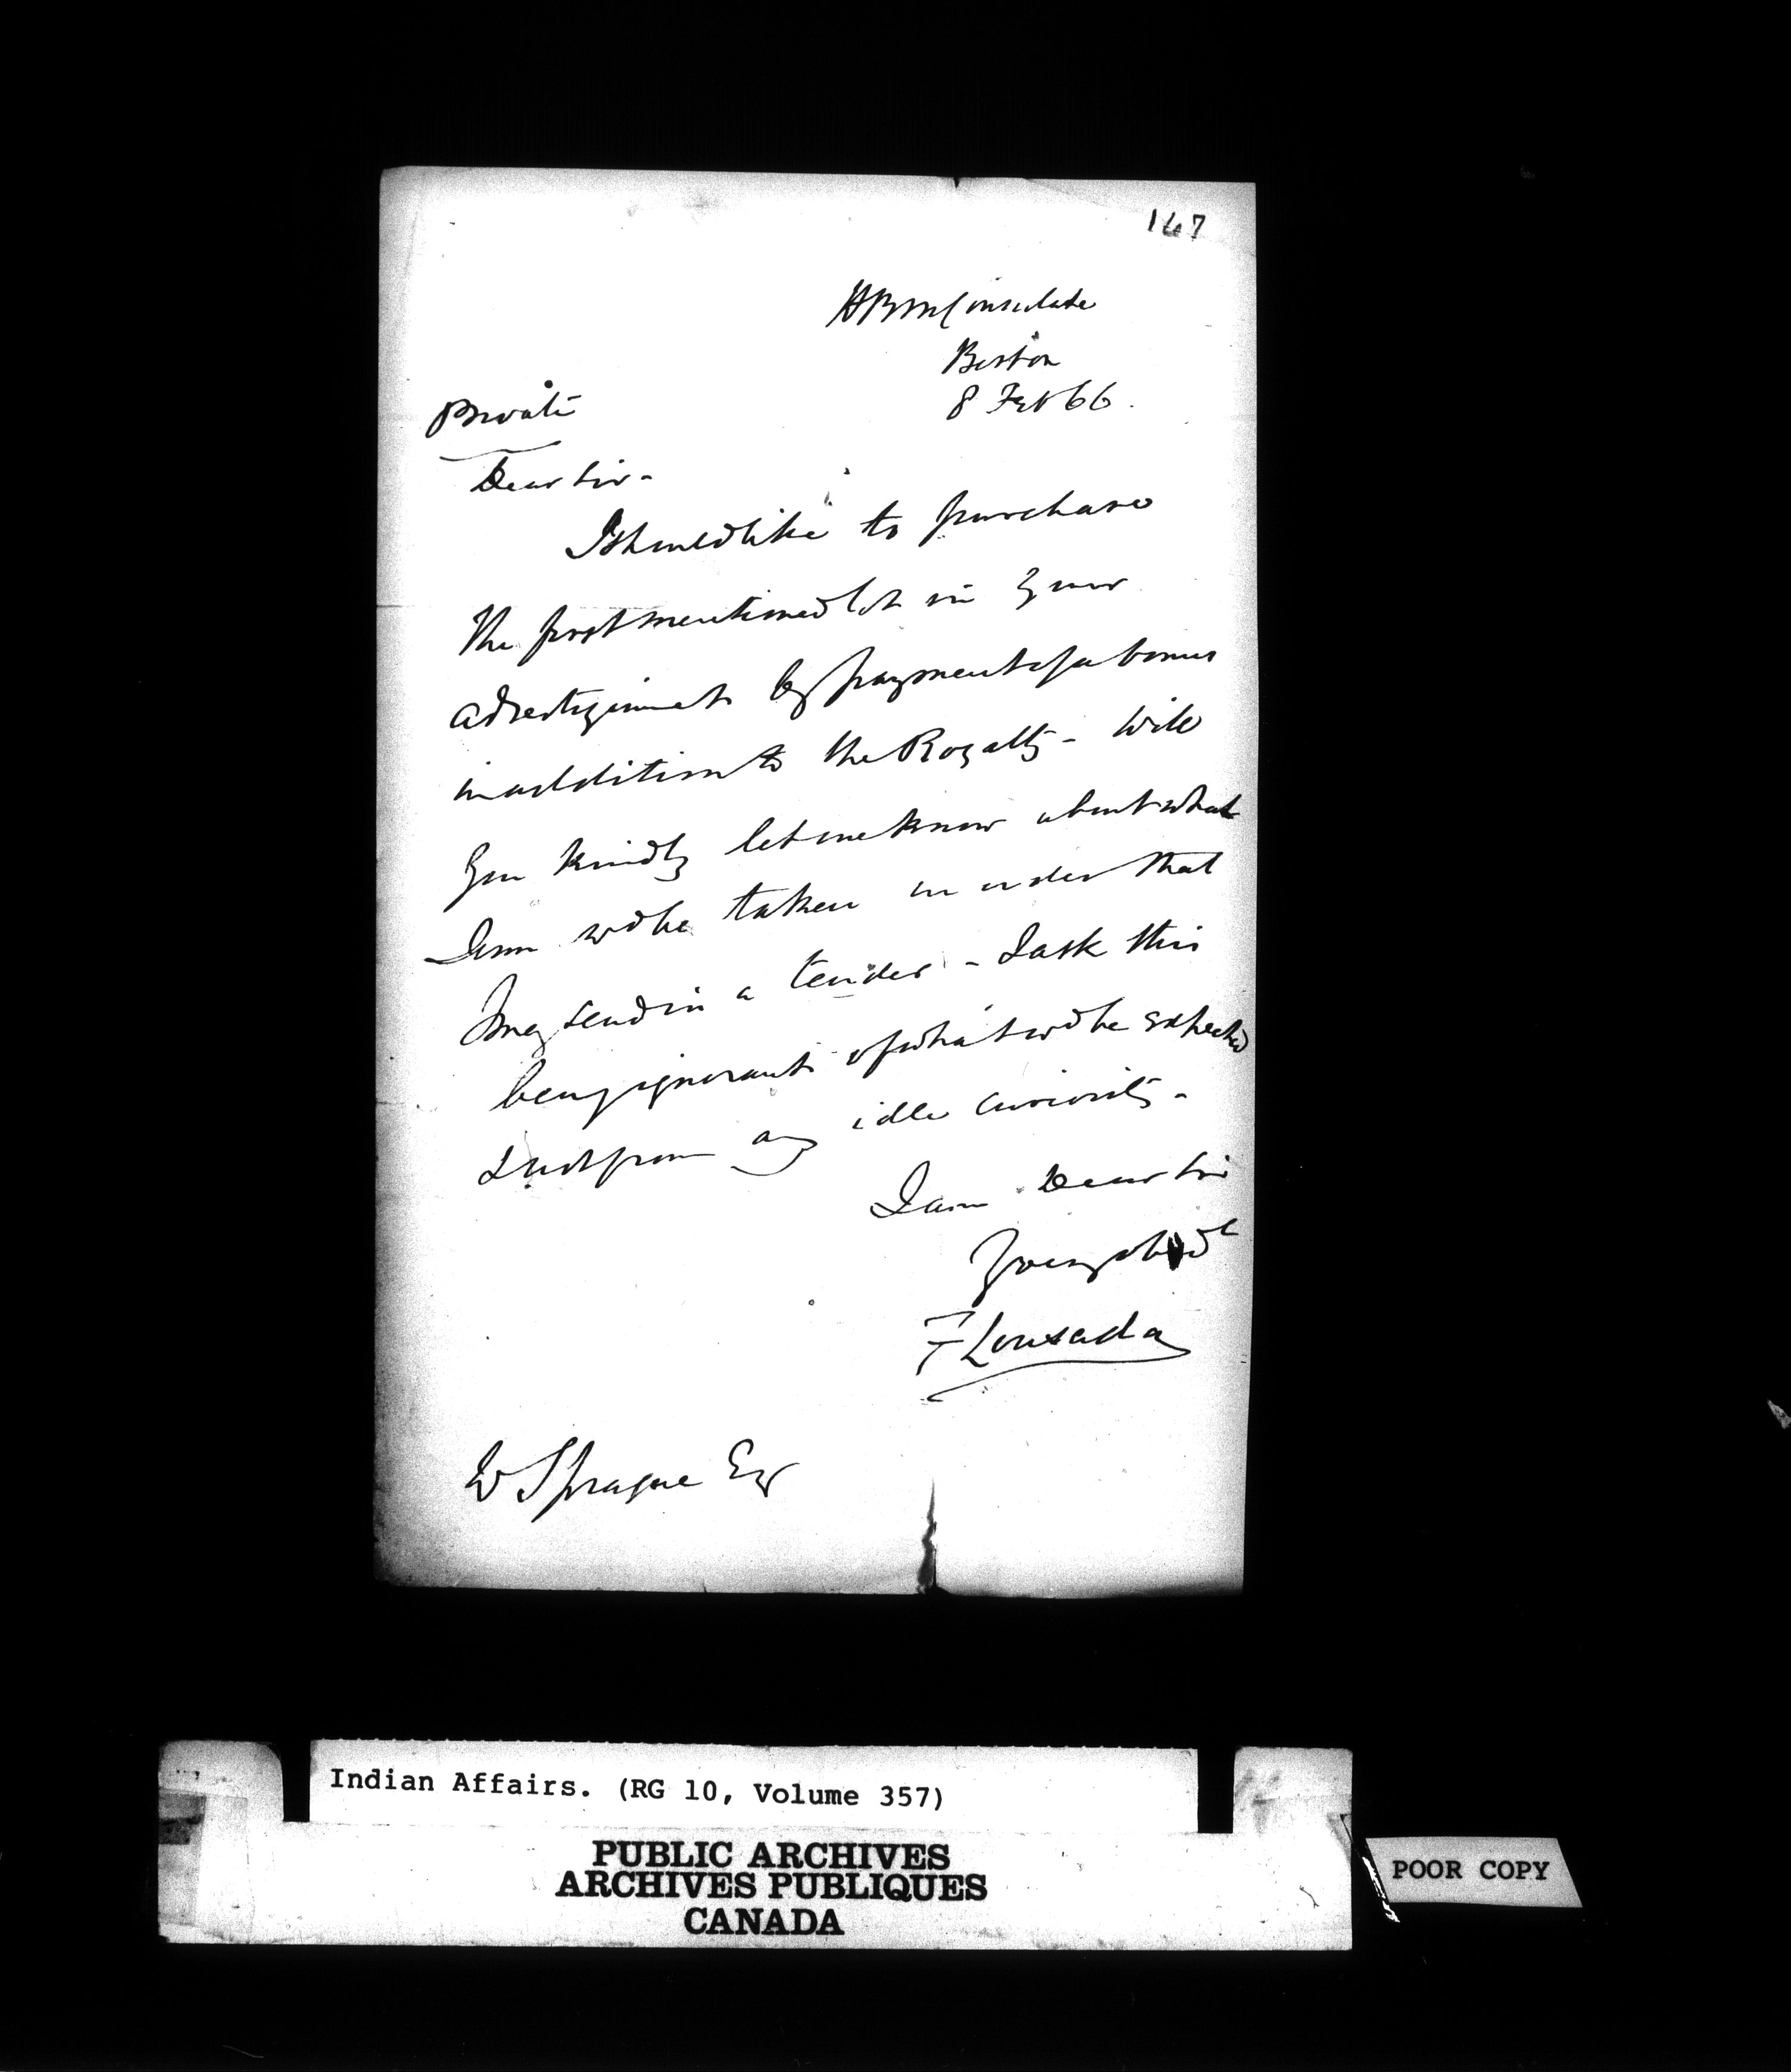 167
HBM Consulate
Boston
8 Feb 66.
Private
Dear Sir -
I should like to purchase
the first mentioned lot in your
advertizement by payment of a bonus
in addition to the Royalty - Will
you kindly let me know about what
sum wd be taken in order that
I may send in a tender - I ask this
being ignorant of what wd be expected
& not from any idle curiosity -
I am Dear Sir
F Lousada
W Sprague Esq
Indian Affairs. (RG 10, Volume 357)
PUBLIC ARCHIVES
ARCHIVES PUBLIQUES
CANADA
POOR COPY